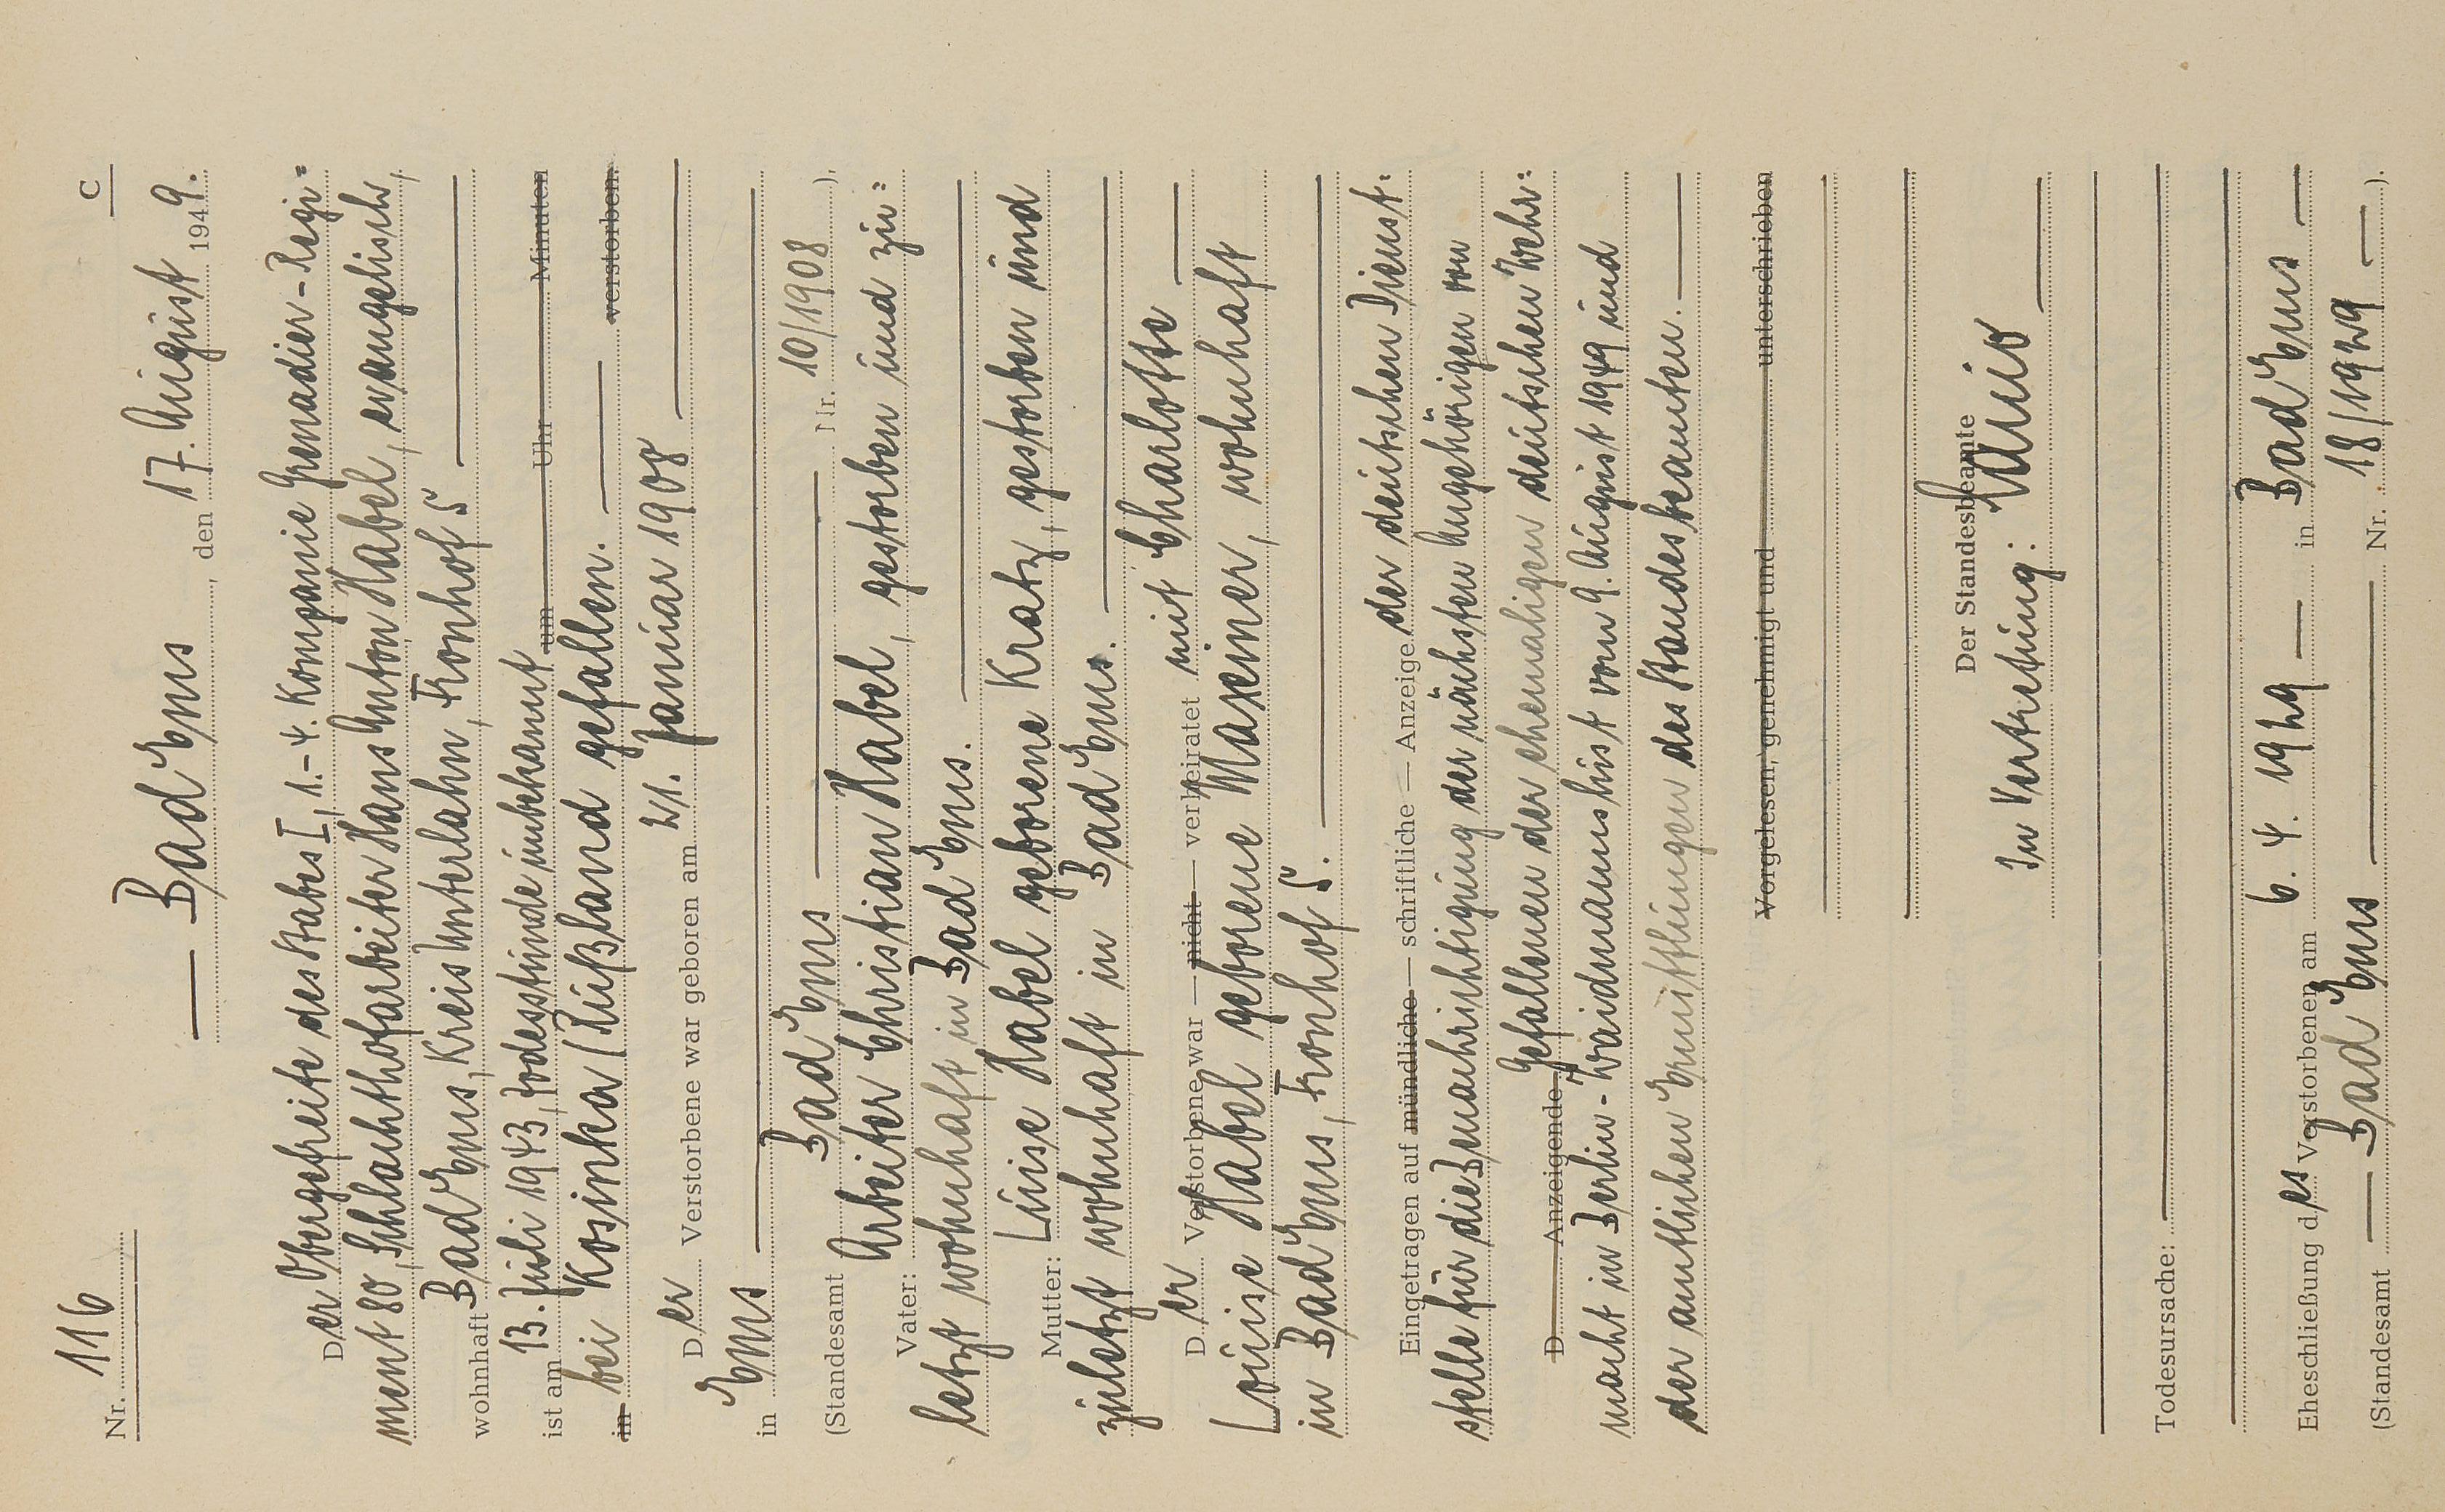 Nr. 116
C
— Bad Ems, den 17. August 1949.
Der Obergefreite des Stabes I, 1.-4. Kompanie Grenadier-Regi=
ment 80, Schlachthofarbeiter Hans Anton Habel, evangelisch,
wohnhaft Bad Ems, Kreis Unterlahn, Fronhof 5 —
ist am 13. Juli 1943, Todesstunde unbekannt um Uhr Minuten
in bei Kosinka / Rußland gefallen. — verstorben.
Der Verstorbene war geboren am 21. Januar 1908 —
in Ems —
(Standesamt Bad Ems — Nr. 10/1908 ),
Vater: Arbeiter Christian Habel, gestorben und zu=
letzt wohnhaft in Bad Ems. —
Mutter: Luise Habel geborene Kratz, gestorben und
zuletzt wohnhaft in Bad Ems. —
Der Verstorbene war — nicht — verheiratet mit Charlotte —
Louise Habel geborene Maxeiner, wohnhaft
in Bad Ems, Fronhof 5. —
Eingetragen auf mündliche — schriftliche — Anzeige der deutschen Dienst=
stelle für die Benachrichtigung der nächsten Angehörigen von
D Anzeigende Gefallenen der ehemaligen deutschen Wehr=
macht in Berlin-Waidmannslust vom 9. August 1949 und
der amtlichen Ermittlungen des Standesbeamten. —
Vorgelesen, genehmigt und unterschrieben
Der Standesbeamte
In Vertretung: —
Todesursache: —
Eheschließung des Verstorbenen am 6. 4. 1929 — in Bad Ems —
(Standesamt — Bad Ems — Nr. 18/1929 — ).